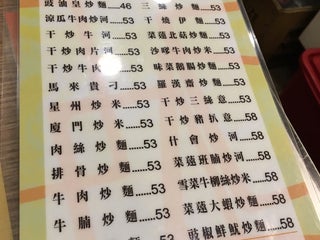 豉油皇炒麵......46
涼瓜牛肉炒河....53
干炒牛河......53
干炒肉片河....53
干炒牛肉意....53
馬來貴刁......53
星州炒米......53
廈門炒米......53
肉絲炒麵......53
排骨炒麵......53
牛肉炒麵......53
牛腩炒麵......53
炒麵......53
三絲炒麵......53
干燒伊麵......53
菜薳北菇炒麵....53
沙嗲牛肉炒米....53
味菜鵝腸炒麵....53
羅漢齋炒麵....53
干炒三絲意....53
干炒豬扒意....58
什會炒河......58
菜薳班腩炒河....58
雪菜牛柳絲炒米..58
菜薳大蝦炒麵....58
豉椒鮮魷炒麵....58